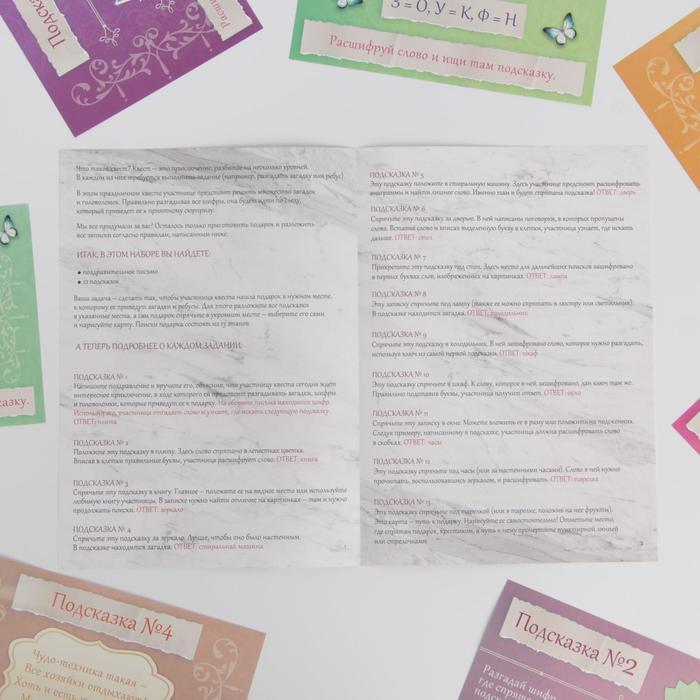 Подск
Расши
З = О, У = К, Ф = Н
Расшифруй слово и ищи там подсказку.
Что такое квест? Квест – это приключение, разбитое на несколько уровней.
В каждом из них требуется выполнить задание (например, разгадать загадку или ребус).
В этом праздничном квесте участнице предстоит решить множество загадок
и головоломок. Правильно разгадывая все шифры, она будет идти по следу,
который приведет ее к приятному сюрпризу.
Мы все придумали за вас! Осталось только приготовить подарок и разложить
все записки согласно правилам, написанным ниже.
ИТАК, В ЭТОМ НАБОРЕ ВЫ НАЙДЕТЕ:
• поздравительное письмо
• 12 подсказок
Ваша задача – сделать так, чтобы участница квеста нашла подарок в нужном месте,
к которому ее приведут загадки и ребусы. Для этого разложите все подсказки
в указанные места, а сам подарок спрячьте в укромном месте – выберите его сами
и нарисуйте карту. Поиски подарка состоят из 13 этапов.
А ТЕПЕРЬ ПОДРОБНЕЕ О КАЖДОМ ЗАДАНИИ:
ПОДСКАЗКА № 1
Напишите поздравление и вручите его, объяснив, что участницу квеста сегодня ждет
интересное приключение, в ходе которого ей предстоит разгадывать загадки, шифры
и головоломки, которые приведут ее к подарку. На обороте письма находится шифр.
Используя его, участница отгадает слово и узнает, где искать следующую подсказку.
ОТВЕТ: плита
ПОДСКАЗКА № 2
Положите эту подсказку в плиту. Здесь слово спрятано в лепестках цветка.
Вписав в клетки правильные буквы, участница расшифрует слово. ОТВЕТ: книга
ПОДСКАЗКА № 3
Спрячьте эту подсказку в книгу. Главное – положите ее на видное место или используйте
любимую книгу участницы. В записке нужно найти отличие на картинках – там и нужно
продолжать поиски. ОТВЕТ: зеркало
ПОДСКАЗКА № 4
Спрячьте эту подсказку за зеркало. Лучше, чтобы оно было настенным.
В подсказке находится загадка. ОТВЕТ: стиральная машина
1
ПОДСКАЗКА № 5
Эту подсказку положите в стиральную машину. Здесь участнице предстоит расшифровать
анаграммы и найти лишнее слово. Именно там и будет спрятана подсказка! ОТВЕТ: дверь
ПОДСКАЗКА № 6
Спрячьте эту подсказку за дверью. В ней написаны поговорки, в которых пропущены
слова. Вставив слово и вписав выделенную букву в клетки, участница узнает, где искать
дальше. ОТВЕТ: стол
ПОДСКАЗКА № 7
Прикрепите эту подсказку под стол. Здесь место для дальнейших поисков зашифровано
в первых буквах слов, изображенных на картинках. ОТВЕТ: лампа
ПОДСКАЗКА № 8
Эту записку спрячьте под лампу (также ее можно спрятать в люстру или светильник).
В подсказке находится загадка. ОТВЕТ: холодильник
ПОДСКАЗКА № 9
Спрячьте эту подсказку в холодильник. В ней зашифровано слово, которое нужно разгадать,
используя ключ из самой первой подсказки. ОТВЕТ: шкаф
ПОДСКАЗКА № 10
Эту подсказку спрячьте в шкаф. К слову, которое в ней зашифровано, дан ключ там же.
Правильно подставив буквы, участница получит ответ. ОТВЕТ: окно
ПОДСКАЗКА № 11
Спрячьте эту записку в окне. Можете вложить ее в раму или положить на подоконник.
Следуя примеру, написанному в подсказке, участница должна расшифровать слово
в скобках. ОТВЕТ: часы
ПОДСКАЗКА № 12
Эту подсказку спрячьте под часы (или за настенными часами). Слово в ней нужно
прочитать, воспользовавшись зеркалом, и расшифровать. ОТВЕТ: тарелка
ПОДСКАЗКА № 13
Эту подсказку спрячьте под тарелкой (или в тарелке, положив на нее фрукты).
Это карта – путь к подарку. Нарисуйте ее самостоятельно! Отметьте место,
где спрятан подарок, крестиком, а путь к нему прочертите пунктирной линией
или стрелочками.
2
сказку.
Подсказка №4
Чудо-техника такая –
Все хозяйки отдыхают!
Хоть и есть
Подсказка №2
Разгадай шифр
где спрята
подск